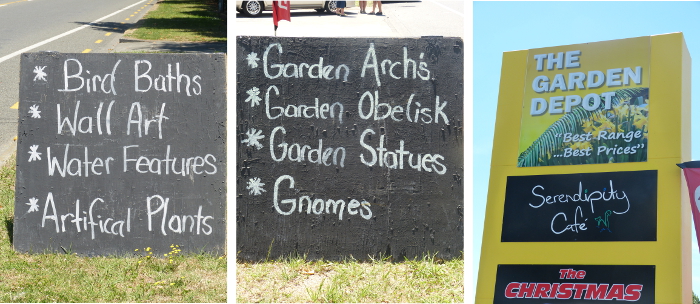 * Bird Baths
* Wall Art
* Water Features
* Artifical Plants
* Garden Arch's
* Garden Obelisk
* Garden Statues
* Gnomes
THE
GARDEN
DEPOT
"Best Range
...Best Prices"
Serendipity
Café
The
CHRISTMAS